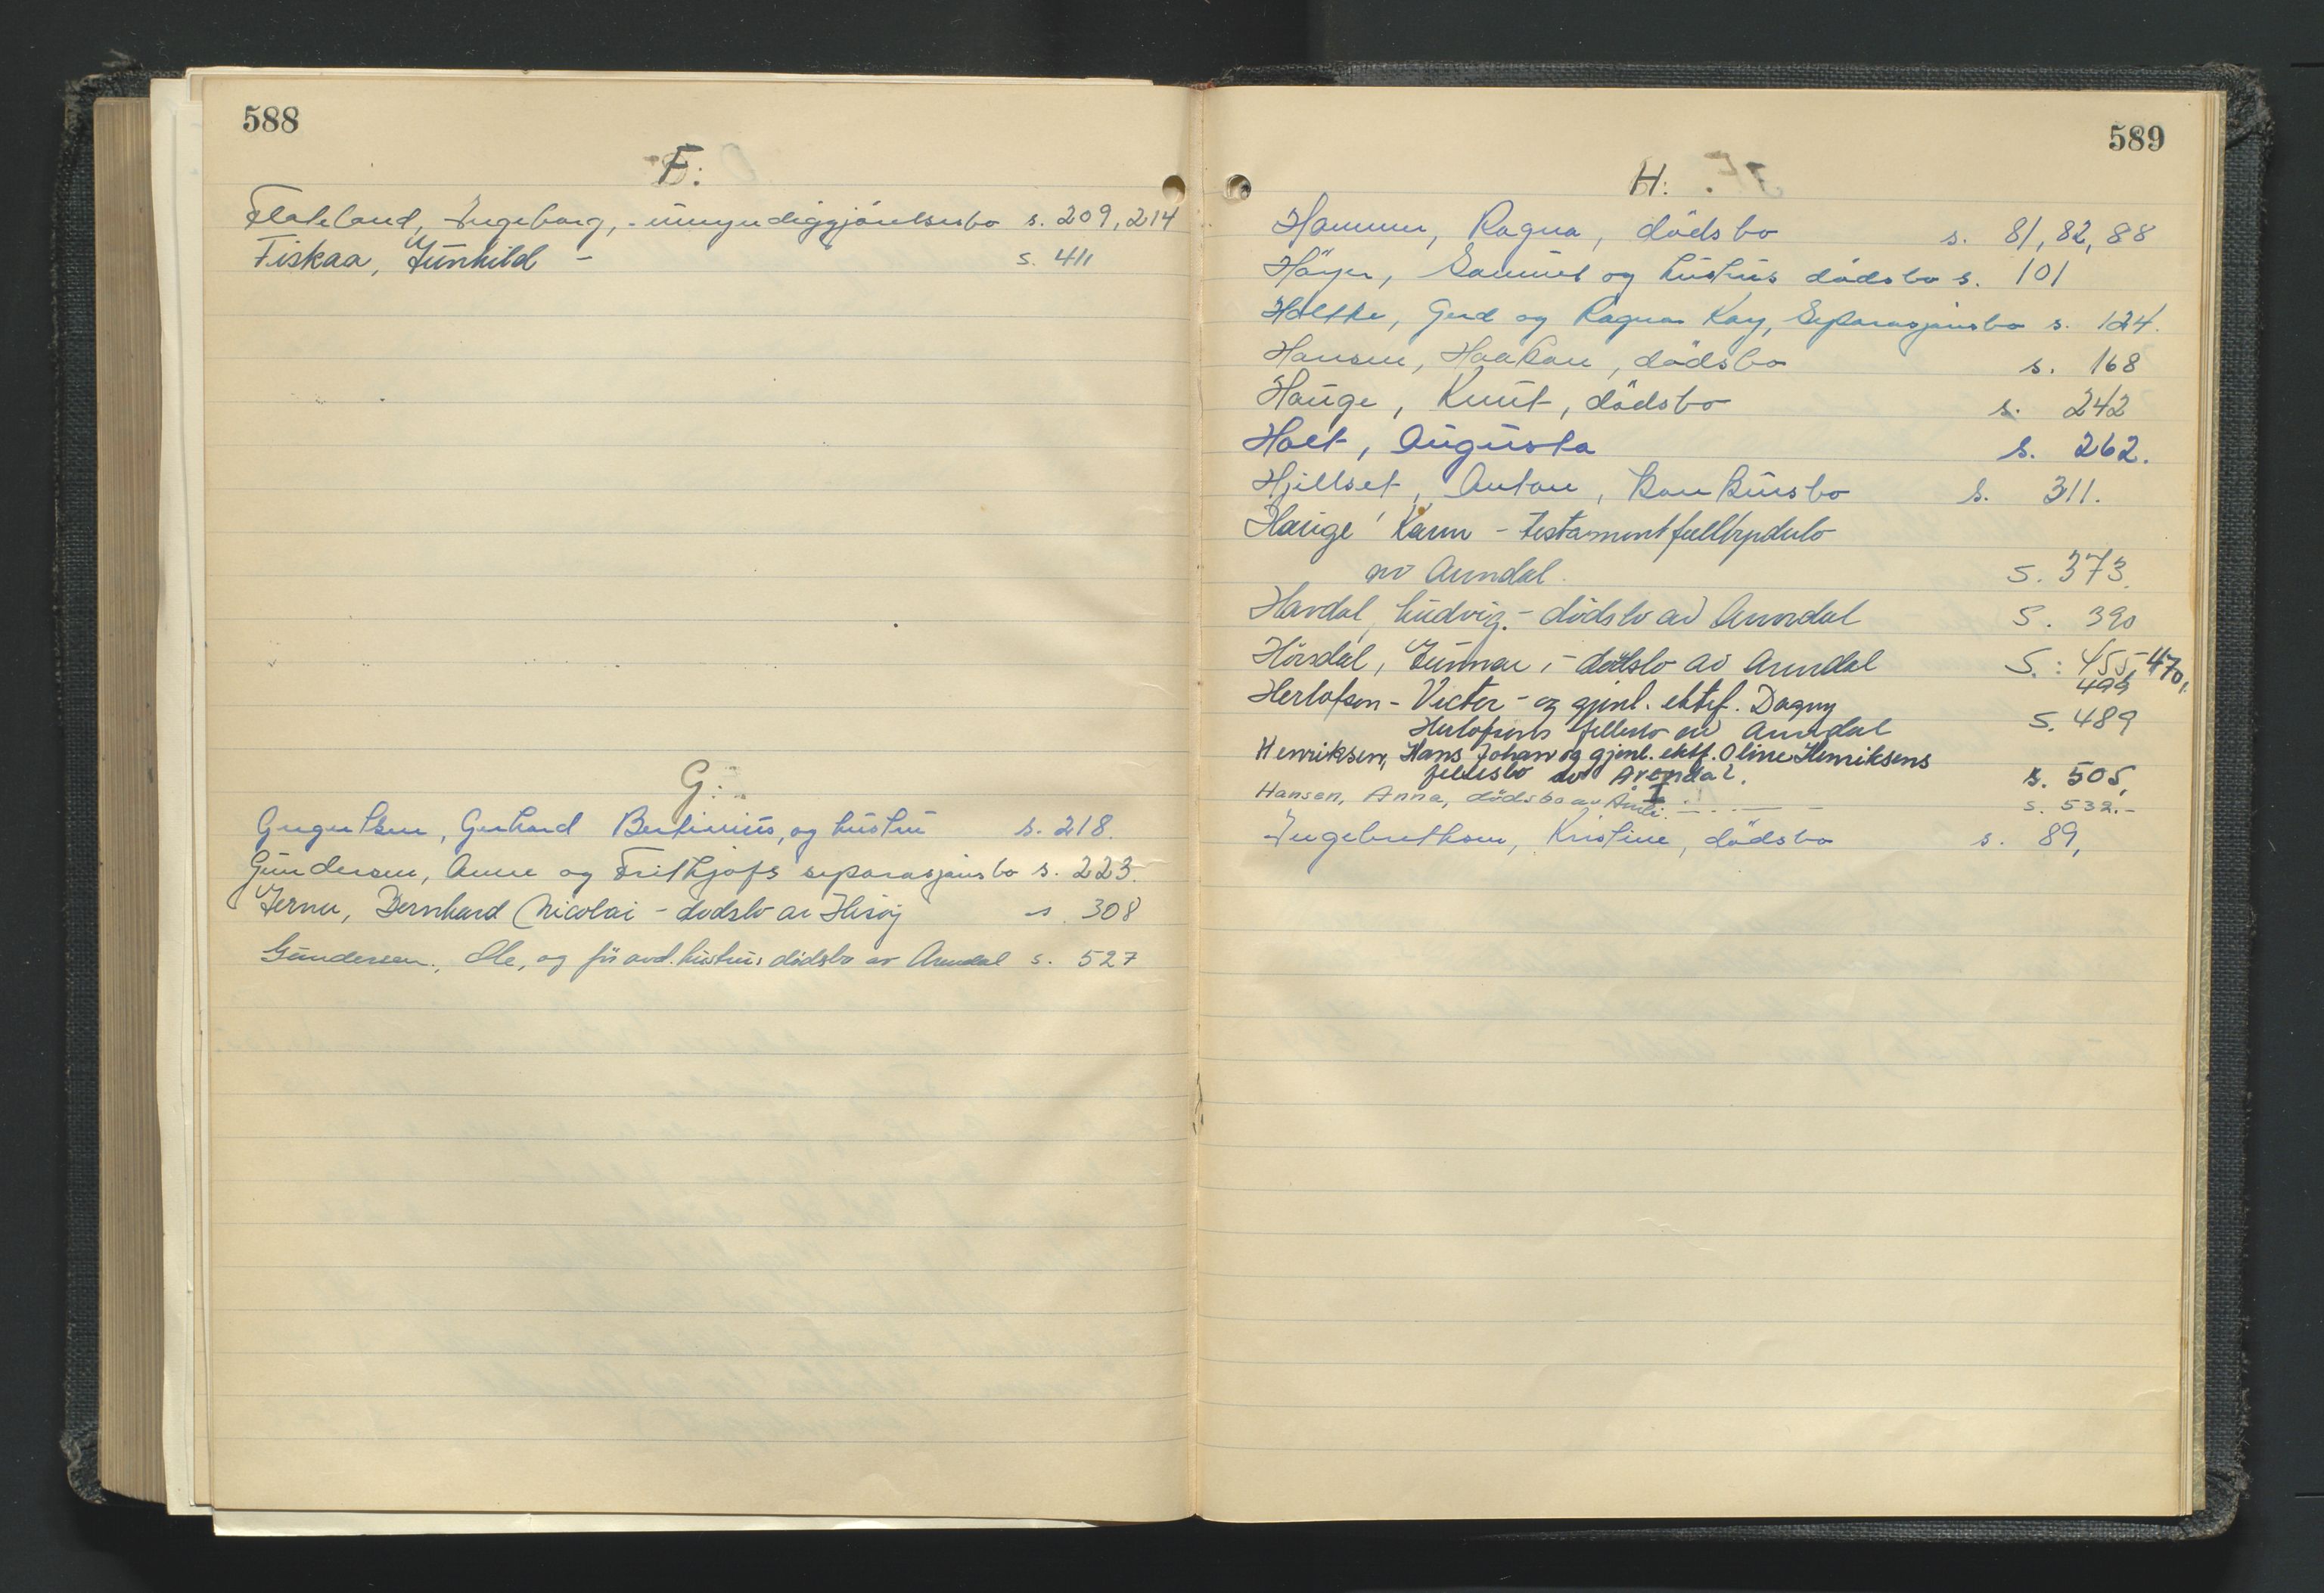 588
F:
Flateland, Ingeborg, - umyndiggjörelsesbo s. 209, 214
Fiskaa, Gunhild - s. 411
G:
Gregertsen, Gerhard Bertinius, og hustru s. 218.
Gundersen, Anne og Frithjofs separasjonsbo s. 223.
Jernu, Bernhard Nicolai - dödsbo av Hisöy s. 308
Gundersen, Ole, og før avd. hustrus dödsbo av Arendal s. 527
589
H:
Hammer, Ragna, dödsbo s. 81, 82, 88
Höyer, Samuel og hustrus dödsbo s. 101
Holthe, Gerd og Ragnar Kay, Separasjonsbo s. 124.
Hansen, Haakon, dödsbo s. 168
Hauge, Knut, dödsbo s. 242
Holt, Augusta s. 262.
Hjellset, Anton, Konkursbo s. 311.
Hauge Karen - testamentfullbyrdelsbo
av Arendal. s. 373.
Havdal, Ludvig. - dödsbo av Arendal s. 390
Hörsdal, Gunnar, - dödsbo av Arendal S.: 455, 470,
499
Herlofsen - Victor - og gjenl. ektef. Dagny
Herlofsens fellesbo av Arendal s. 489
Henriksen, Hans Johan og gjenl. ektf. Oline Henriksens
fellesbo av Arendal. s. 505,
Hansen, Anna, dödsbo av Åmli. s. 532.-
I
Ingebretsen, Kristine, dödsbo s. 89,